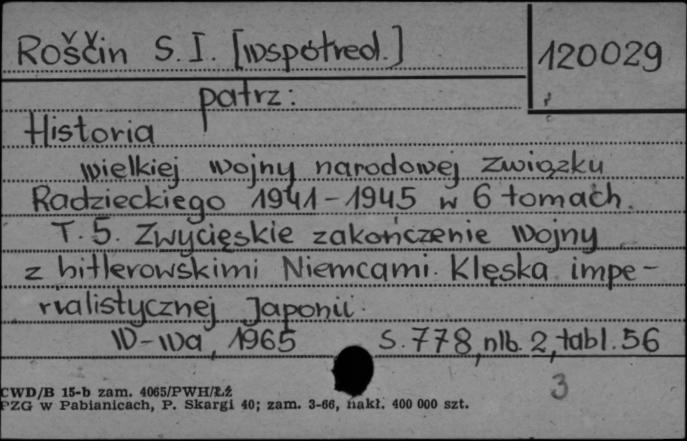 Roščin S. I. [współred.]
120029
patrz:
Historia
wielkiej wojny narodowej Związku
Radzieckiego 1941-1945 w 6 tomach.
T. 5. Zwycięskie zakończenie wojny
z hitlerowskimi Niemcami. Klęska impe-
rialistycznej Japonii.
W-wa, 1965 S. 778, nlb. 2, tabl. 56
3
CWD/B 15-b zam. 4065/PWH/ŁŹ
PZG w Pabianicach, P. Skargi 40; zam. 3-66, nakł. 400 000 szt.